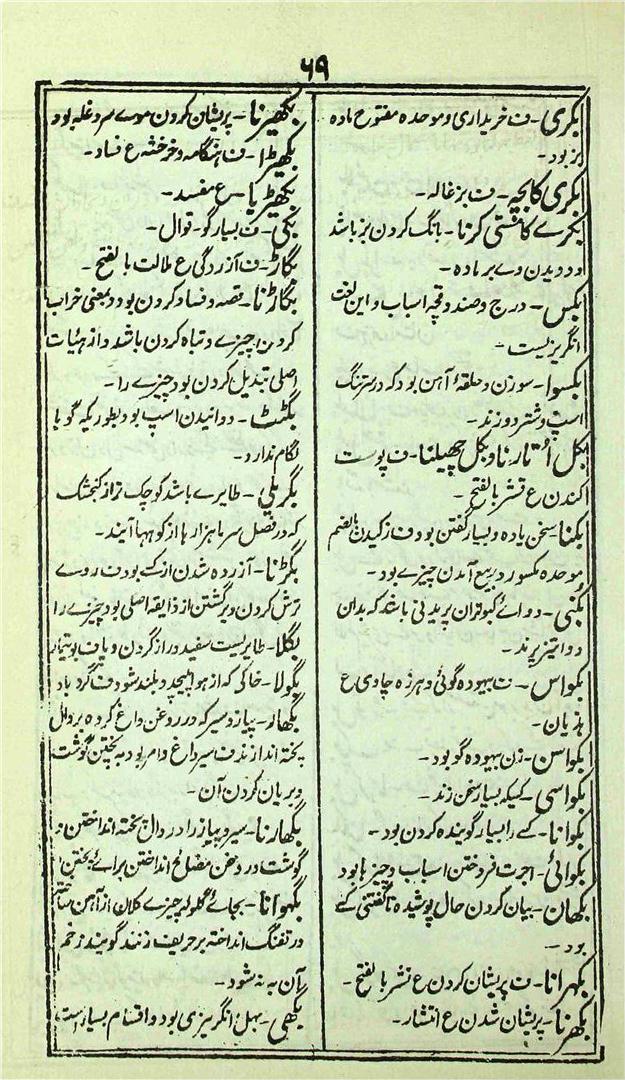 ۶۹
بکری - ف خریداری و موحده مفتوح ماده
بز بود -
بکری کا بچہ - ف بزغالہ -
بکرے کا مستی کرنا - بانگ کردن بز باشد
و دویدن وے بر ماده -
بکس - درج و صندوقچہ اسباب و این لغت
انگریزیست -
بکسوا - سوزن و حلقۂ آہن بود کہ در تنگ
اسپ و شتر دوزند -
بکل اُتارنا و بکل چھیلنا - ف پوست
کندن ع قشر بالفتح -
بکنا - سخن یاده و بسیار گفتن بود ف ژکیدن بالضم
موحده مکسور در بیع آمدن چیزے بود -
بکنی - دواے کبوتران پریدنی باشد کہ بدان
دوا تیز پرند -
بکواس - ف بیہوده گوئی و ہرزه چاوی ع
ہذیان -
بکواسن - زن بیہوده گو بود -
بکواسی - کسیکہ بسیار سخن زند -
بکوانا - کسے را بسیار گوینده کردن بود -
بکوائی - اجرت فروختن اسباب و چیزہا بود
بکھان - بیان کردن حال پوشیده ناگفتنی کسے
بود -
بکھرانا - ف پریشان کردن ع نشر بالفتح -
بکھرنا - پریشان شدن ع انتشار -
بکھیرنا - پریشان کردن موے سر و غلہ بود
بکھیڑا - ف ہنگامہ و خرخشہ ع فساد -
بکھیڑیا - ع مفسد -
بکی - ف بسیار گو - قوال -
بگاڑ - ف آزردگی ع ملالت بالفتح -
بگاڑنا - قصہ و فساد کردن بود و بمعنی خراب
کردن چیزے و تباه کردن باشد و از ہیئات
اصلی تبدیل کردن بود چیزے را -
بگٹٹ - دوانیدن اسپ بود بطوریکہ گویا
لگام ندارد -
بگریلی - طایرے باشد کوچک تر از کنجشک
کہ در فصل سرما ہزارہا از کوہہا آیند -
بگڑنا - آزرده شدن از کسے بود ف روے
ترش کردن و برگشتن از ذایقہ اصلی بود چیزے را
بگلا - طایریست سفید دراز گردن و پا ف بوتیمار
بگولا - خاکی کہ از ہوا پیچد و بلند شود ف گردباد
بگھار - پیاز و سیر کہ در روغن داغ کرده بر دال
پختہ اندازند ف سیر داغ و امر بود بہ پختن گوشت
و بریان کردن آن -
بگھارنا - سیر و پیاز را در دال پختہ انداختن و
گوشت در روغن مصالح انداختن برائے پختن
بگھوانا - بجائے گلولہ چیزے کلان از آہن ساختہ
در تفنگ انداختہ بر حریف زنند گویند زخم
آن بہ نہ شود -
بگھی - بہل انگریزی بود و اقسام بسیار است